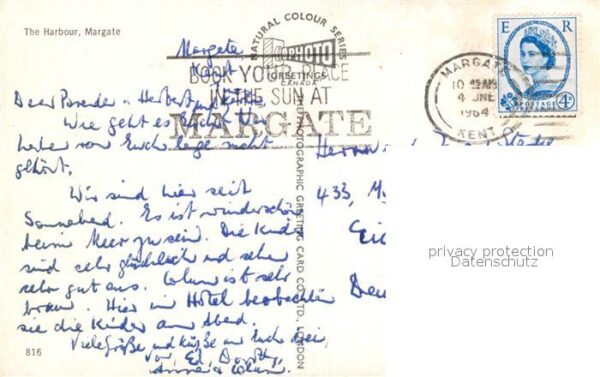 The Harbour, Margate
NATURAL COLOUR SERIES
PHOTO
GREETINGS
CANADA
THE PHOTOGRAPHIC GREETING CARD CO. LTD., LONDON
BOOK YOUR PLACE
IN THE SUN AT
MARGATE
MARGATE
10 AM
4 JNE
1964
KENT
E R
POSTAGE
4D
Margate,
Kent
Dear Herbert und
Wie geht es Euch? Wir
haben von Euch lange nicht
gehört.
Wir sind hier seit
Sonnabend. Es ist wunderschön
beim Meer zu sein. Die Kinder
sind sehr glücklich und sehen
sehr gut aus. Colum ist sehr
braun. Hier im Hotel beobachten
sie die Kinder am Abend.
Viele Grüße und Küsse an Euch drei,
von Ed, Dorothy,
Anna & Colum.
Herrn
433, M
privacy protection
Datenschutz
816